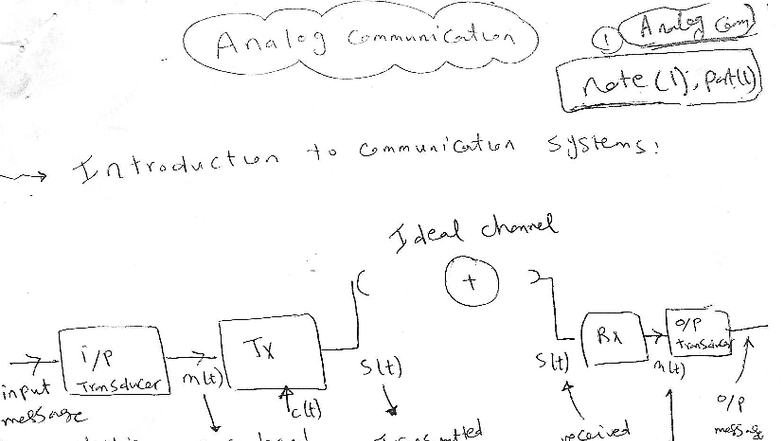 Analog Communication
① Analog Com
note(1), part(1)
Introduction to communication systems:
Ideal channel
+
i/P
Transducer
Tx
Rx
O/P
Transducer
input
message
m(t)
c(t)
S(t)
S(t)
m(t)
O/P
message
received